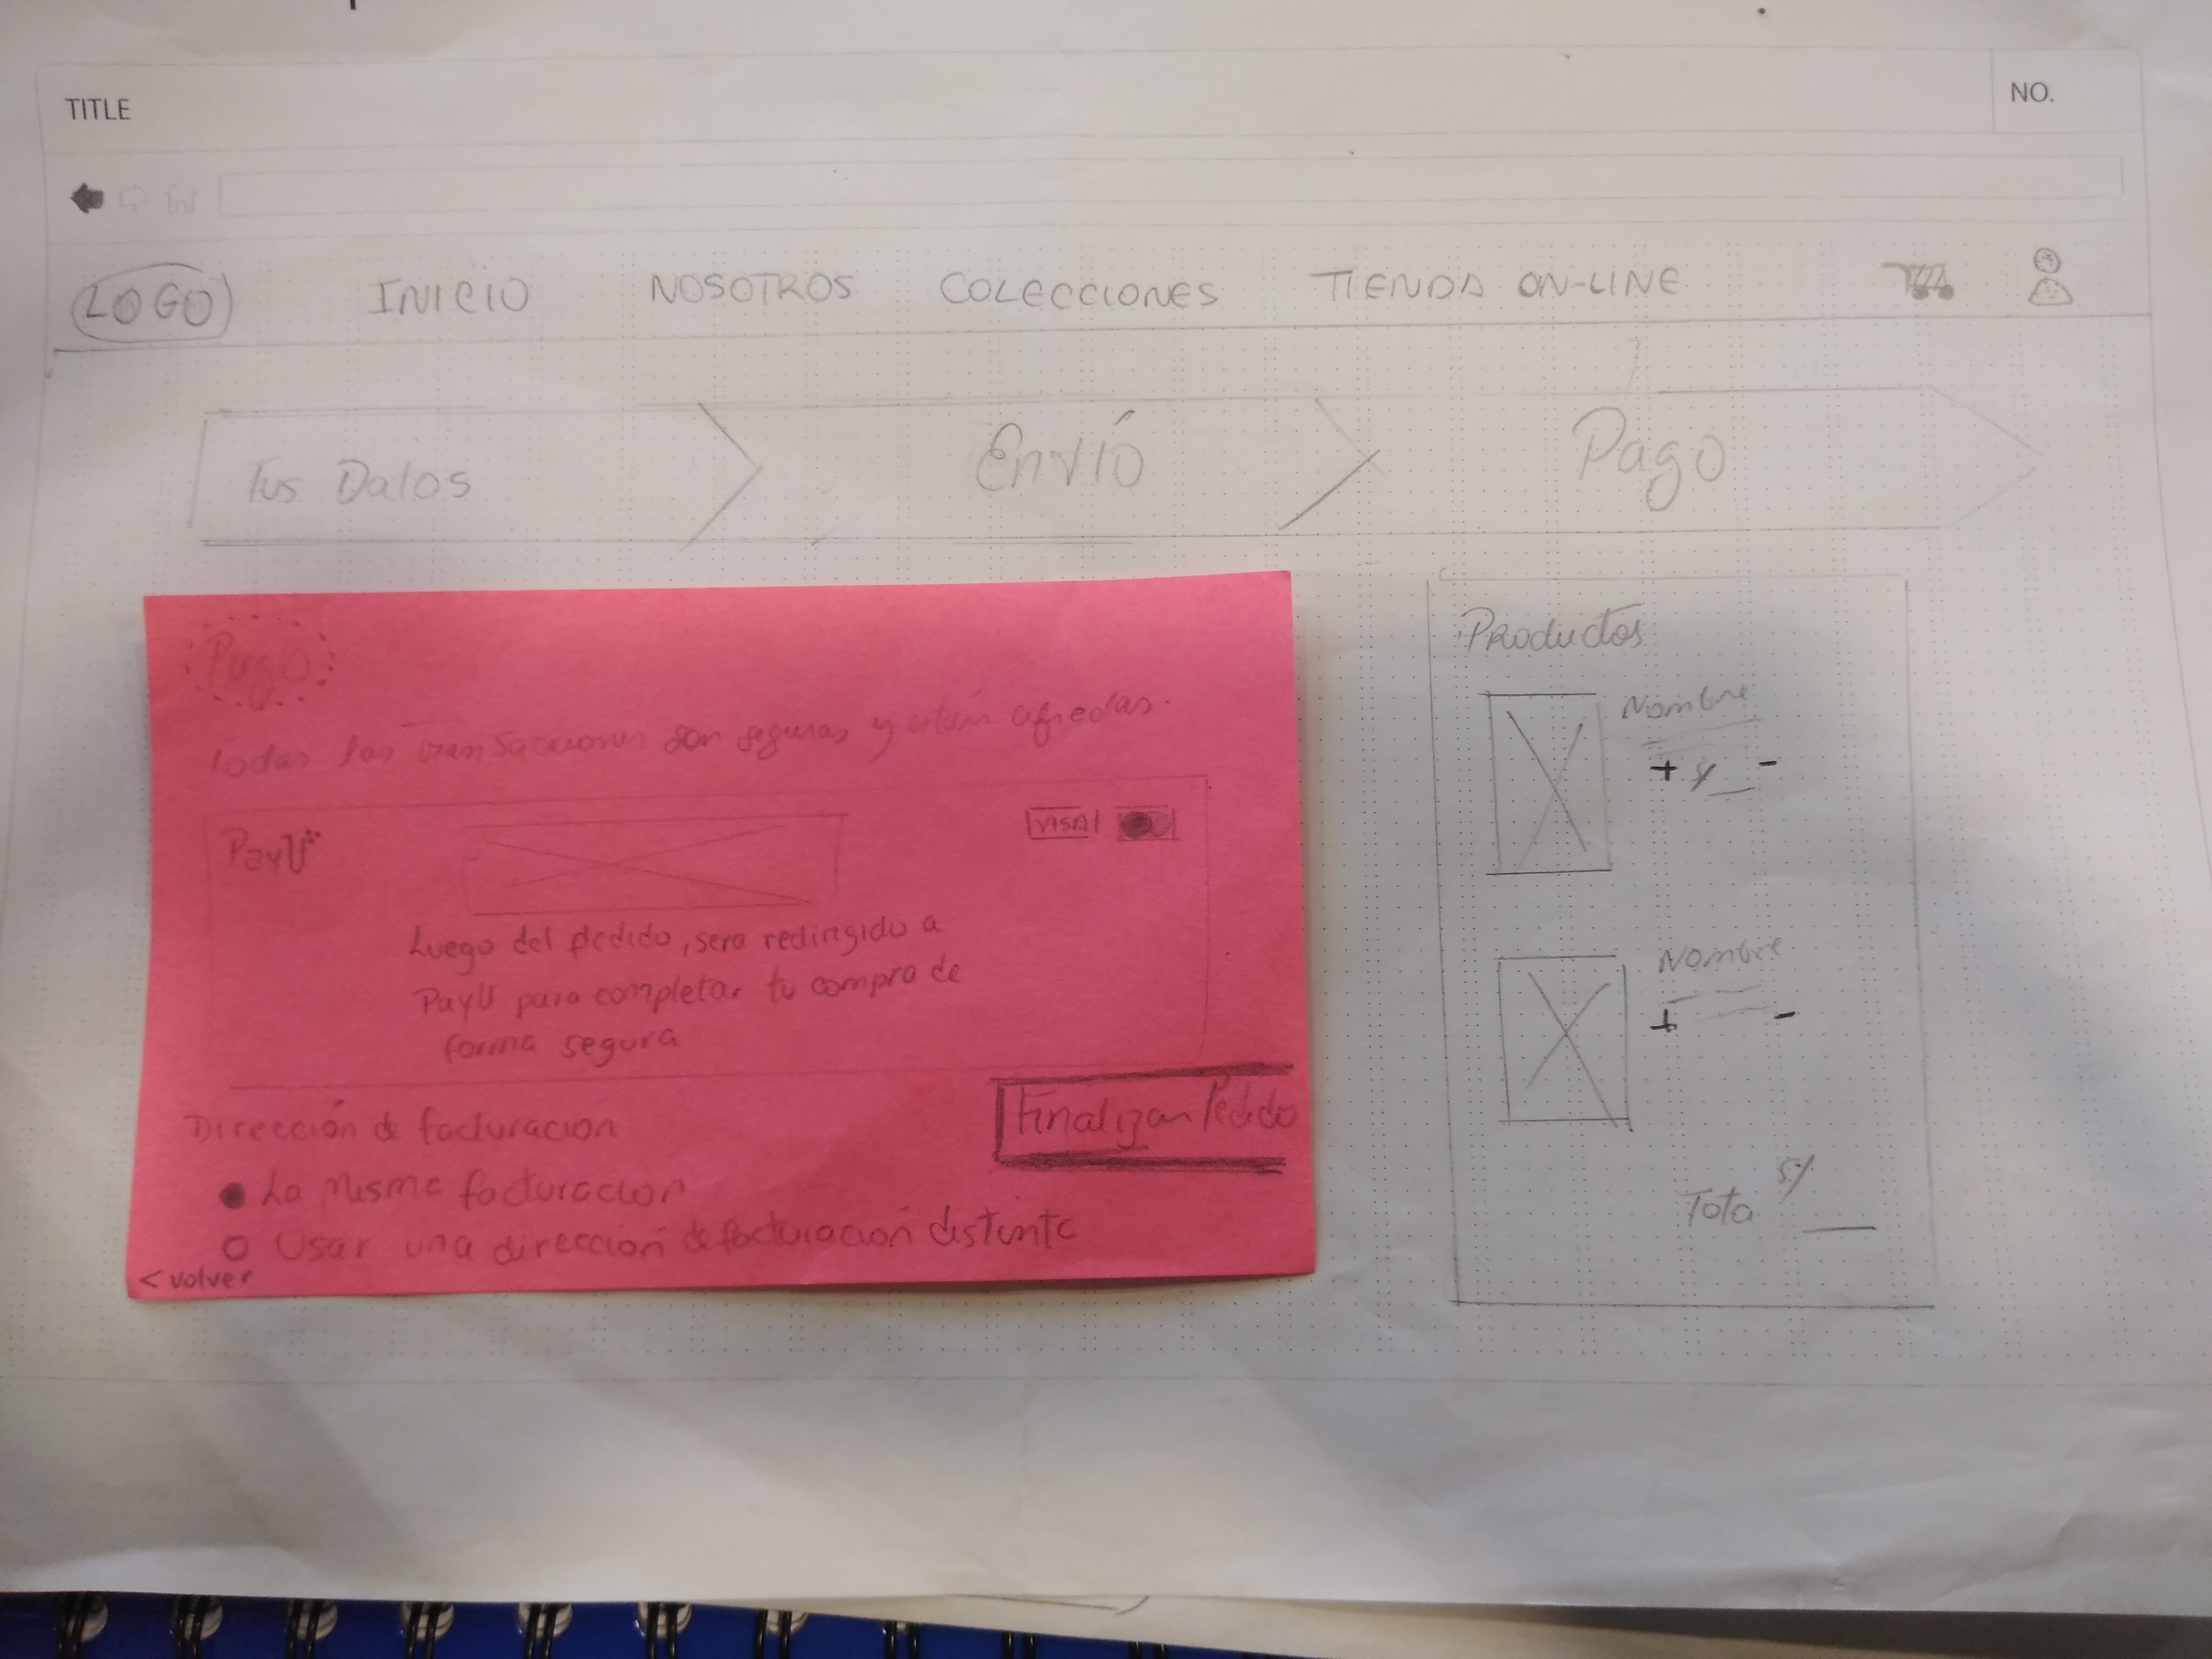 TITLE
NO.
LOGO INICIO NOSOTROS COLECCIONES TIENDA ON-LINE
Tus Datos
Envió
Pago
Pago
Todas las transacciones son seguras y están
PayU
VISA
Luego del pedido, sera redirigido a
PayU para completar tu compra de
forma segura
Finalizar Pedido
Dirección de facturacion
La misma facturacion
Usar una dirección de facturación distinta
< volver
Productos
Nombre
+ S/ __ -
Nombre
+ -
S/
Tota ___